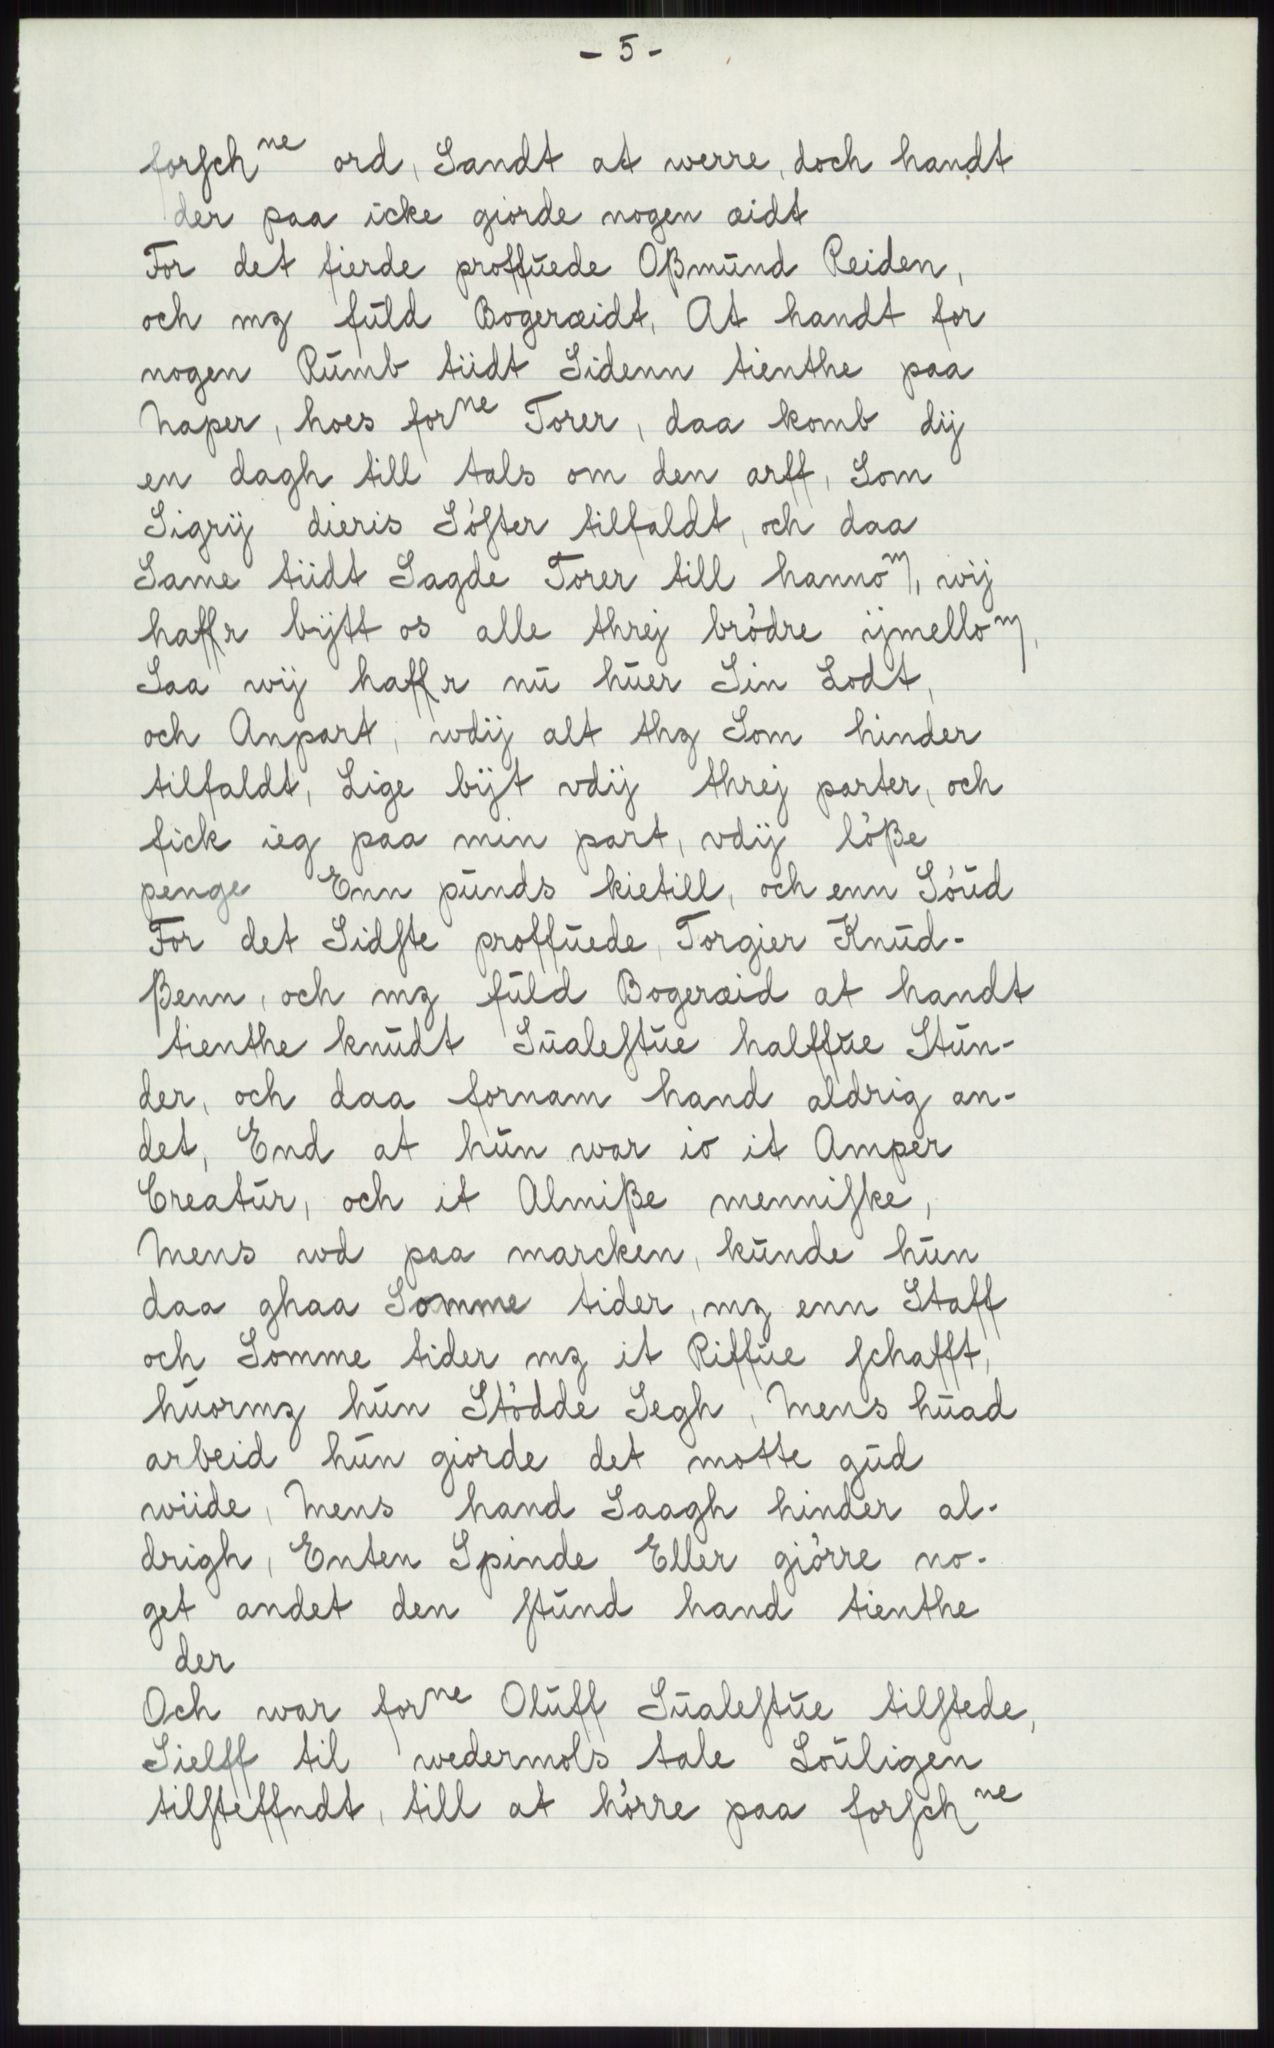 - 5 -
forſchⁿᵉ ord, Sandt at werre, doch handt
der paa icke giorde nogen æidt
For det fierde proffuede Oßmund Reiden,
och mz fuld Bogeræidt, At handt for
nogen Rumb tiidt Sidenn tienthe paa
Naper, hoes forⁿᵉ Torer, daa komb dij
en dagh till tals om den arff, Som
Sigrij dieris Søſter tilfaldt, och daa
Same tiidt Sagde Torer till hannoᵐ, wij
haffr bijtt os alle threj brødre ijmelloᵐ,
Saa wij haffr nu huer Sin Lodt,
och Anpart, wdij alt thz Som hinder
tilfaldt, Lige bijt vdij threj parter, och
fick ieg paa min part, vdij løße
penge Enn punds kietill, och enn Søud
For det Sidſte proffuede, Torgier Knud-
ßenn, och mz fuld Bogeræid at handt
tienthe knudt Sualeſtue halffue Stun-
der, och daa fornam hand aldrig an-
det, End at hun war io it Amper
Creatur, och it Almiße menniſke,
Mens wd paa marcken, kunde hun
daa ghaa Somme tider, mz enn Staff
och Somme tider mz it Riffue ſchafft,
huormz hun Stødde Segh, Mens huad
arbeid hun giorde det motte gud
wiide, Mens hand Saagh hinder al-
drigh, Enten Spinde Eller giørre no-
get andet den ſtund hand tienthe
der
Och war forⁿᵉ Oluff Sualeſtue tilſtede,
Sielff til wedermols tale Louligen
tilſteffndt, till at hørre paa forſchⁿᵉ